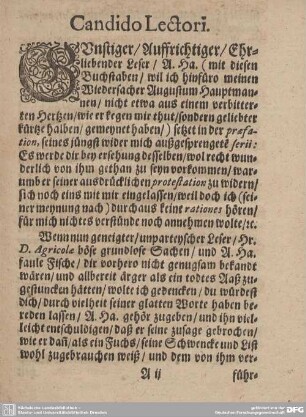 Candido Lectori.
GUnstiger/ Auffrichtiger/ Ehr-
liebender Leser/ A. Ha. (mit diesen
Buchstaben/ wil ich hinfüro meinen
Wiedersacher Augustum Hauptman-
nen/ nicht etwa aus einem verbitter-
ten Hertzen/ wie er kegen mir thut/ sondern geliebter
kürtze halben/ gemeynet haben/) setzet in der præfa-
tion, seines jüngst wider mich außgesprengetẽ serii:
Es werde dir bey ersehung desselben/ wol recht wun-
derlich von ihm gethan zu seyn vorkommen/ war-
umb er seiner ausdrücklichen protestation zu widern/
sich noch eins mit mir eingelassen/ weil doch ich (sei-
ner meynung nach) durchaus keine rationes hören/
für mich nichtes verstünde noch annehmen wolte/ ꝛc.
Wenn nun geneigter/ unparteyscher Leser/ Hr.
D. Agricolæ böse grundlose Sachen/ und A. Ha.
faule Fische/ dir vorhero nicht genugsam bekandt
wären/ und allbereit ärger als ein todtes Aaß zu-
gestuncken hätten/ wolte ich gedencken/ du würdest
dich/ durch vielheit seiner glatten Worte haben be-
reden lassen/ A. Ha. gehör zugeben/ und ihn viel-
leicht entschuldigen/ daß er seine zusage gebrochen/
wie er dañ/ als ein Fuchs/ seine Schwencke und List
wohl zugebrauchen weiß/ und dem von ihm ver-
A ij führ-